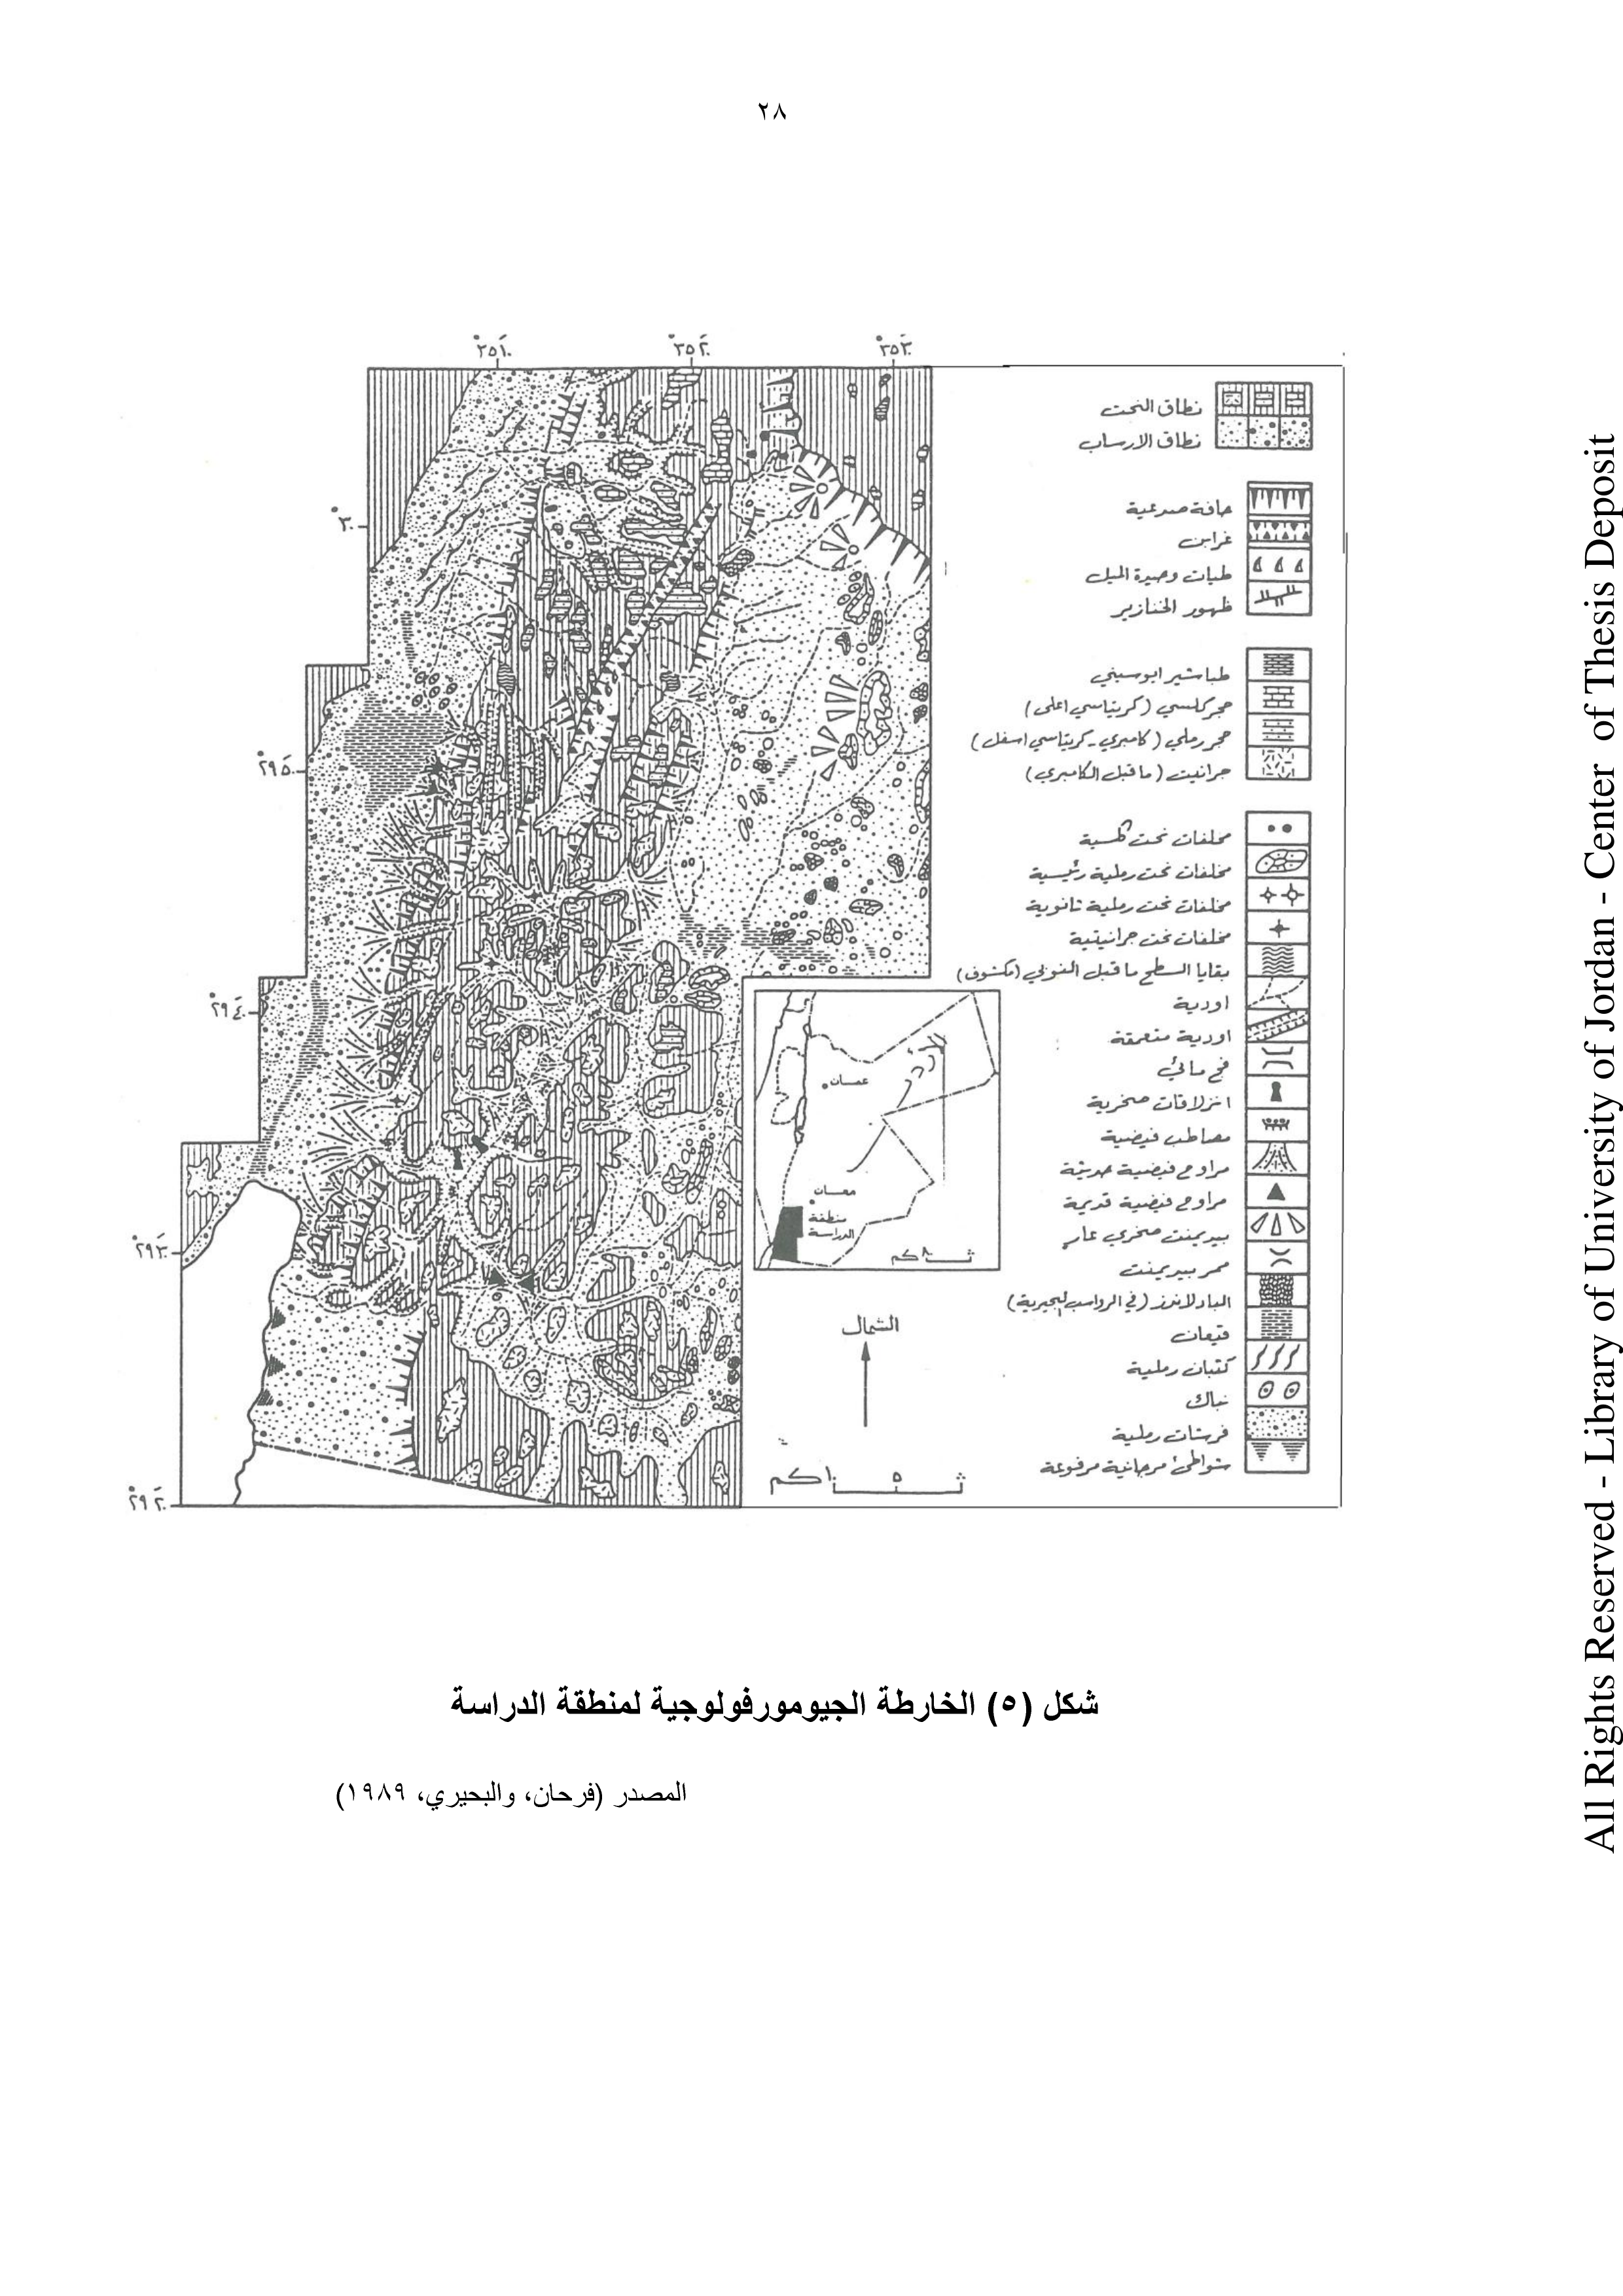 ٢٨
٣٥١٠°
٣٥٢٠°
٣٥٣٠°
٣٠°
٢٩٥٠°
٢٩٤٠°
٢٩٣٠°
٢٩٢٠°
نطاق النحت
نطاق الارساب
حافة صدعية
غرابن
طيات وحيدة الميل
ظهور الخنازير
طباشير ايوسيني
حجر كلسي (كريتاسي اعلى)
حجر رملي (كامبري - كريتاسي اسفل)
جرانيت (ما قبل الكامبري)
مخلفات نحت كلسية
مخلفات نحت رملية رئيسية
مخلفات نحت رملية ثانوية
مخلفات نحت جرانيتية
بقايا السطح ما قبل (مكشوف)
اودية
اودية متعمقة
فج مائي
انزلاقات صخرية
مصاطب فيضية
مراوح فيضية حديثة
مراوح فيضية قديمة
بيديمنت صخري عار
ممر بيديمنت
البادلاندز (في الرواسب البحيرية)
قيعان
كثبان رملية
نباك
فرشات رملية
شواطئ مرجانية مرفوعة
الأردن
عمان
معان
منطقة
الدراسة
كم
الشمال
١٠ كم
٥
شكل (٥) الخارطة الجيومورفولوجية لمنطقة الدراسة
المصدر (فرحان، والبحيري، ١٩٨٩)
All Rights Reserved - Library of University of Jordan - Center of Thesis Deposit